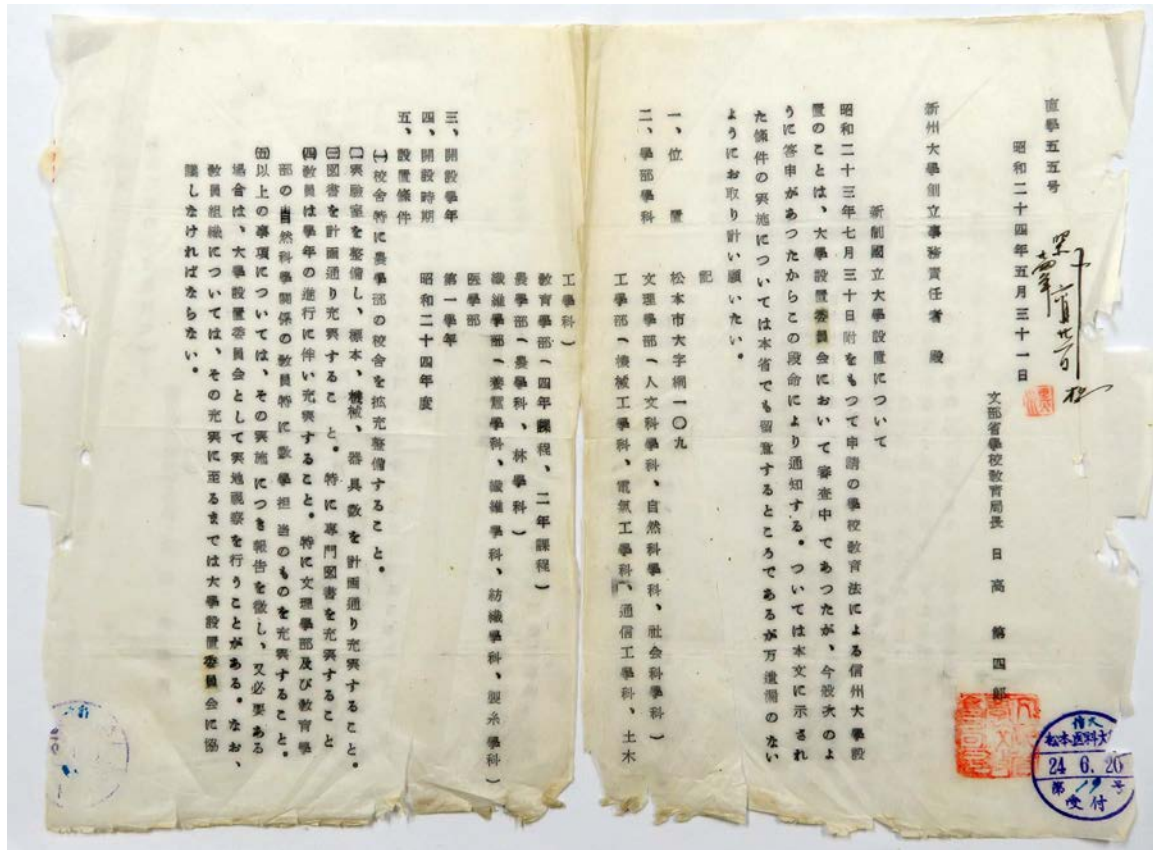 直學五五号
昭和二十四年五月三十一日
文部省學校教育局長 日高 第四郎
新州大學創立事務責任者 殿
新制國立大學設置について
昭和二十三年七月三十日附をもつて申請の學校教育法による信州大學設
置のことは、大學設置委員会において審査中であつたが、今般次のよ
うに答申があつたからこの段命により通知する。ついては本文に示され
た條件の実施については本省でも留意するところであるが万遺漏のない
ようにお取り計い願いたい。
記
一、位 置 松本市大字桐一〇九
二、學部學科 文理學部(人文科學科、自然科學科、社会科學科)
工學部(機械工學科、電氣工學科、通信工學科、土木
工學科)
教育學部(四年課程、二年課程)
農學部(農學科、林學科)
纖維學部(養蚕學科、纖維學科、紡織學科、製糸學科)
医學部
三、開設學年 第一學年
四、開設時期 昭和二十四年度
五、設置條件
(一)校舎特に農學部の校舎を拡充整備すること。
(二)実驗室を整備し、標本、機械、器具数を計画通り充実すること。
(三)図書を計画通り充実すること。特に専門図書を充実すること
(四)教員は學年の進行に伴い充実すること。特に文理學部及び教育學
部の自然科學関係の教員特に数學担当のものを充実すること。
(五)以上の事項については、その実施につき報告を徴し、又必要ある
場合は、大學設置委員会として実地視察を行うことがある。なお、
教員組織については、その充実に至るまでは大學設置委員会に協
議しなければならない。
信大
松本医科大
24 6. 20
第19号
受付